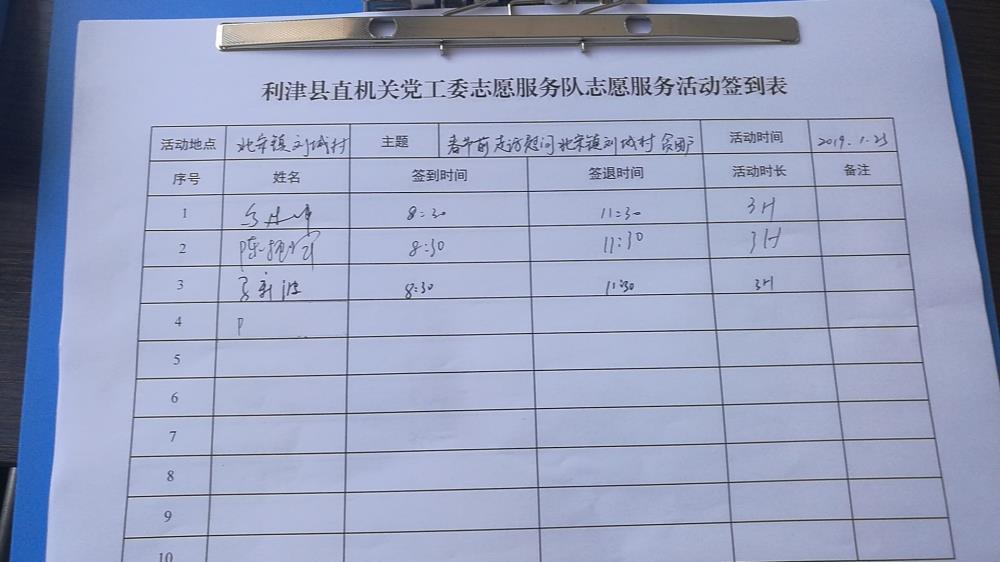 利津县直机关党工委志愿服务队志愿服务活动签到表
活动地点 北宋镇刘城村 主题 春节前走访慰问北宋镇刘城村贫困户 活动时间 2019.1.23
序号 姓名 签到时间 签退时间 活动时长 备注
1 8:30 11:30 3H
2 陈 8:30 11:30 3H
3 8:30 11:30 3H
4
5
6
7
8
9
10